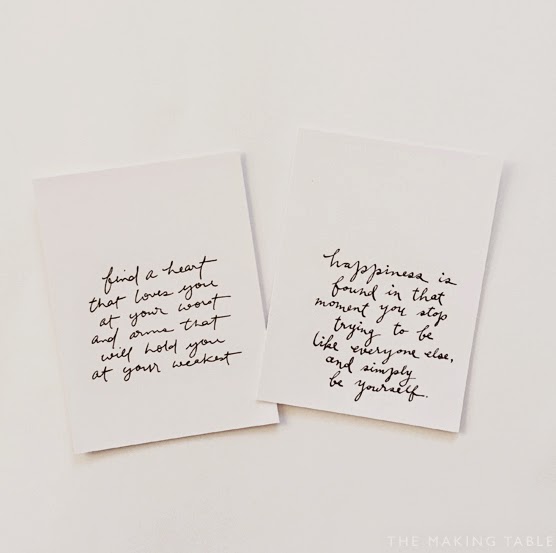 find a heart
that loves you
at your worst
and arms that
will hold you
at your weakest
happiness is
found in that
moment you stop
trying to be
like everyone else,
and simply
be yourself.
THE MAKING TABLE